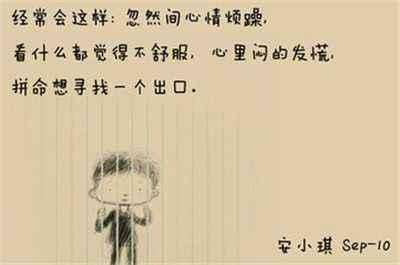 经常会这样：忽然间心情烦躁，
看什么都觉得不舒服，心里闷的发慌，
拼命想寻找一个出口。
安小琪 Sep-10